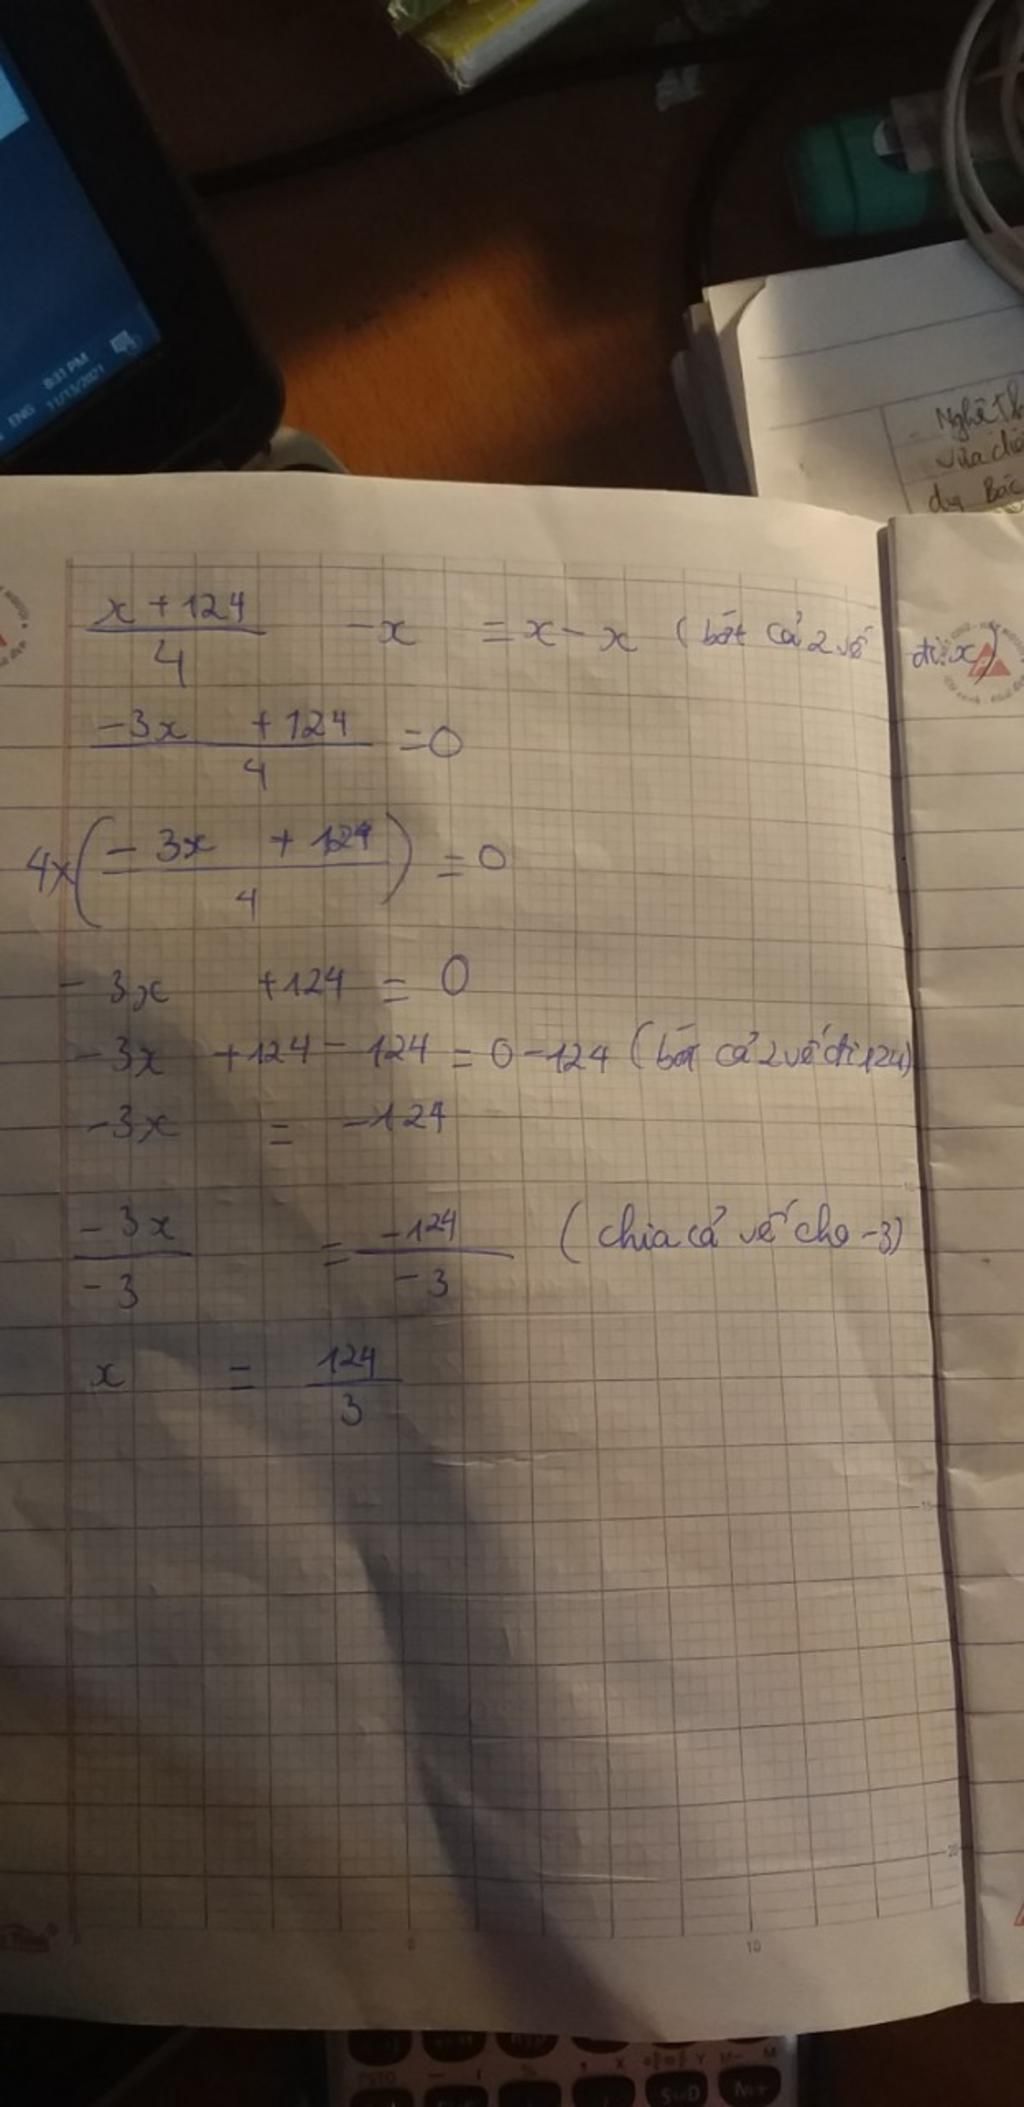 8:31 PM
ENG 11/13/2021
Nghệ th
vừa
dụ Bác
x + 124 / 4 - x = x - x (bớt cả 2 vế đi x)
-3x + 124 / 4 = 0
4x( - 3x + 124 / 4 ) = 0
- 3x + 124 = 0
-3x + 124 - 124 = 0 - 124 (bớt cả 2 vế đi 124)
-3x = -124
-3x / -3 = -124 / -3 (chia cả vế cho -3)
x = 124 / 3
10
15
20
0
10